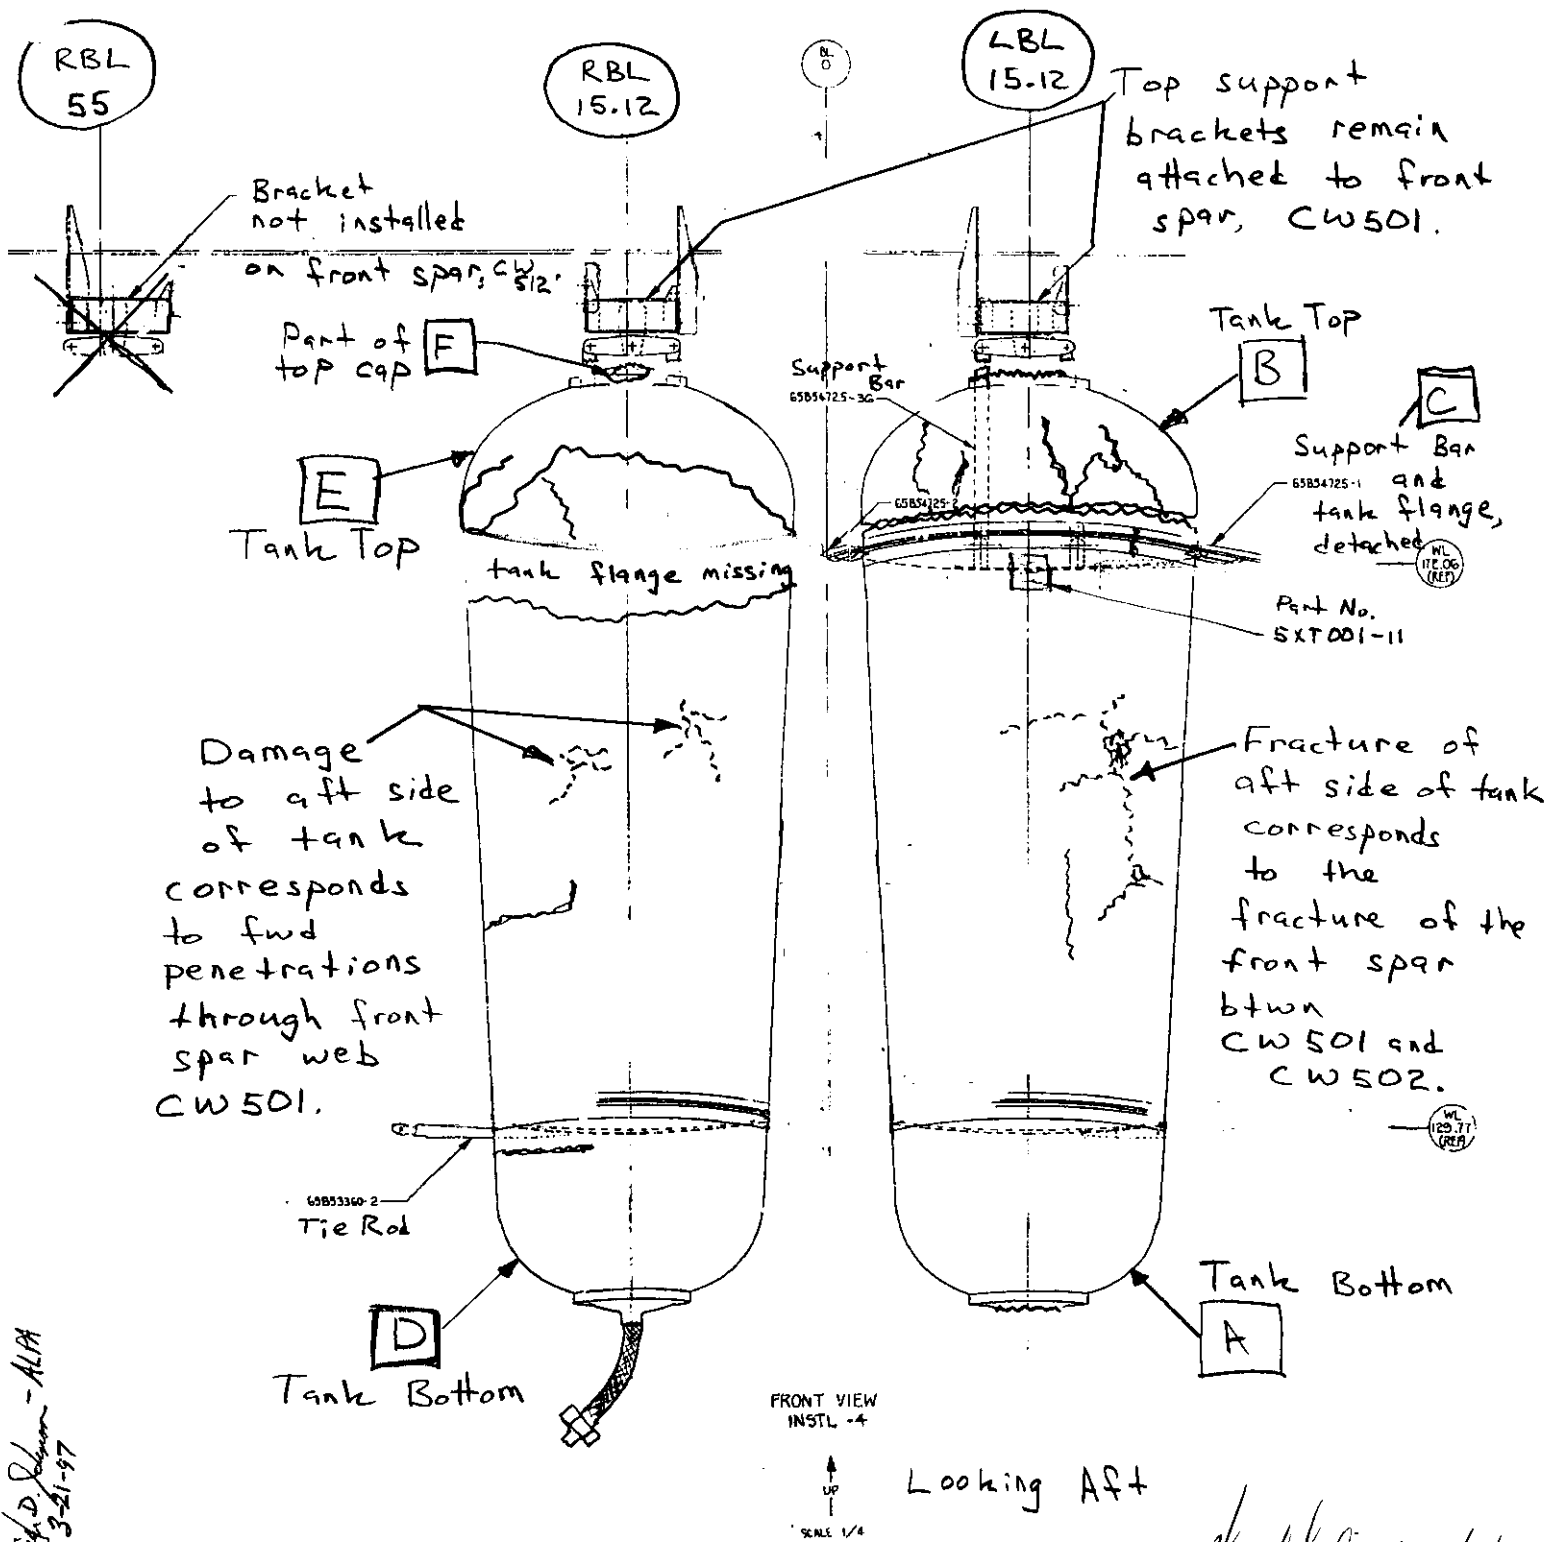 RBL
55
RBL
15.12
BL
0
LBL
15.12
Top support
brackets remain
attached to front
spar, CW501.
Bracket
not installed
on front spar, CW
512.
Part of
top cap
F
Support
Bar
Tank Top
B
C
Support Bar
65B54725-1 and
tank flange,
detached
65B54725-2
E
Tank Top
tank flange missing
WL
(REF)
Part No.
5XT001-11
Damage
to aft side
of tank
corresponds
to fwd
penetrations
through front
spar web
CW501.
Fracture of
aft side of tank
corresponds
to the
fracture of the
front spar
btwn
CW 501 and
CW 502.
WL
129.77
(REF)
Tie Rod
D
Tank Bottom
Tank Bottom
A
FRONT VIEW
INSTL -4
UP
SCALE 1/4
Looking Aft
D. - ALPA
3-21-97